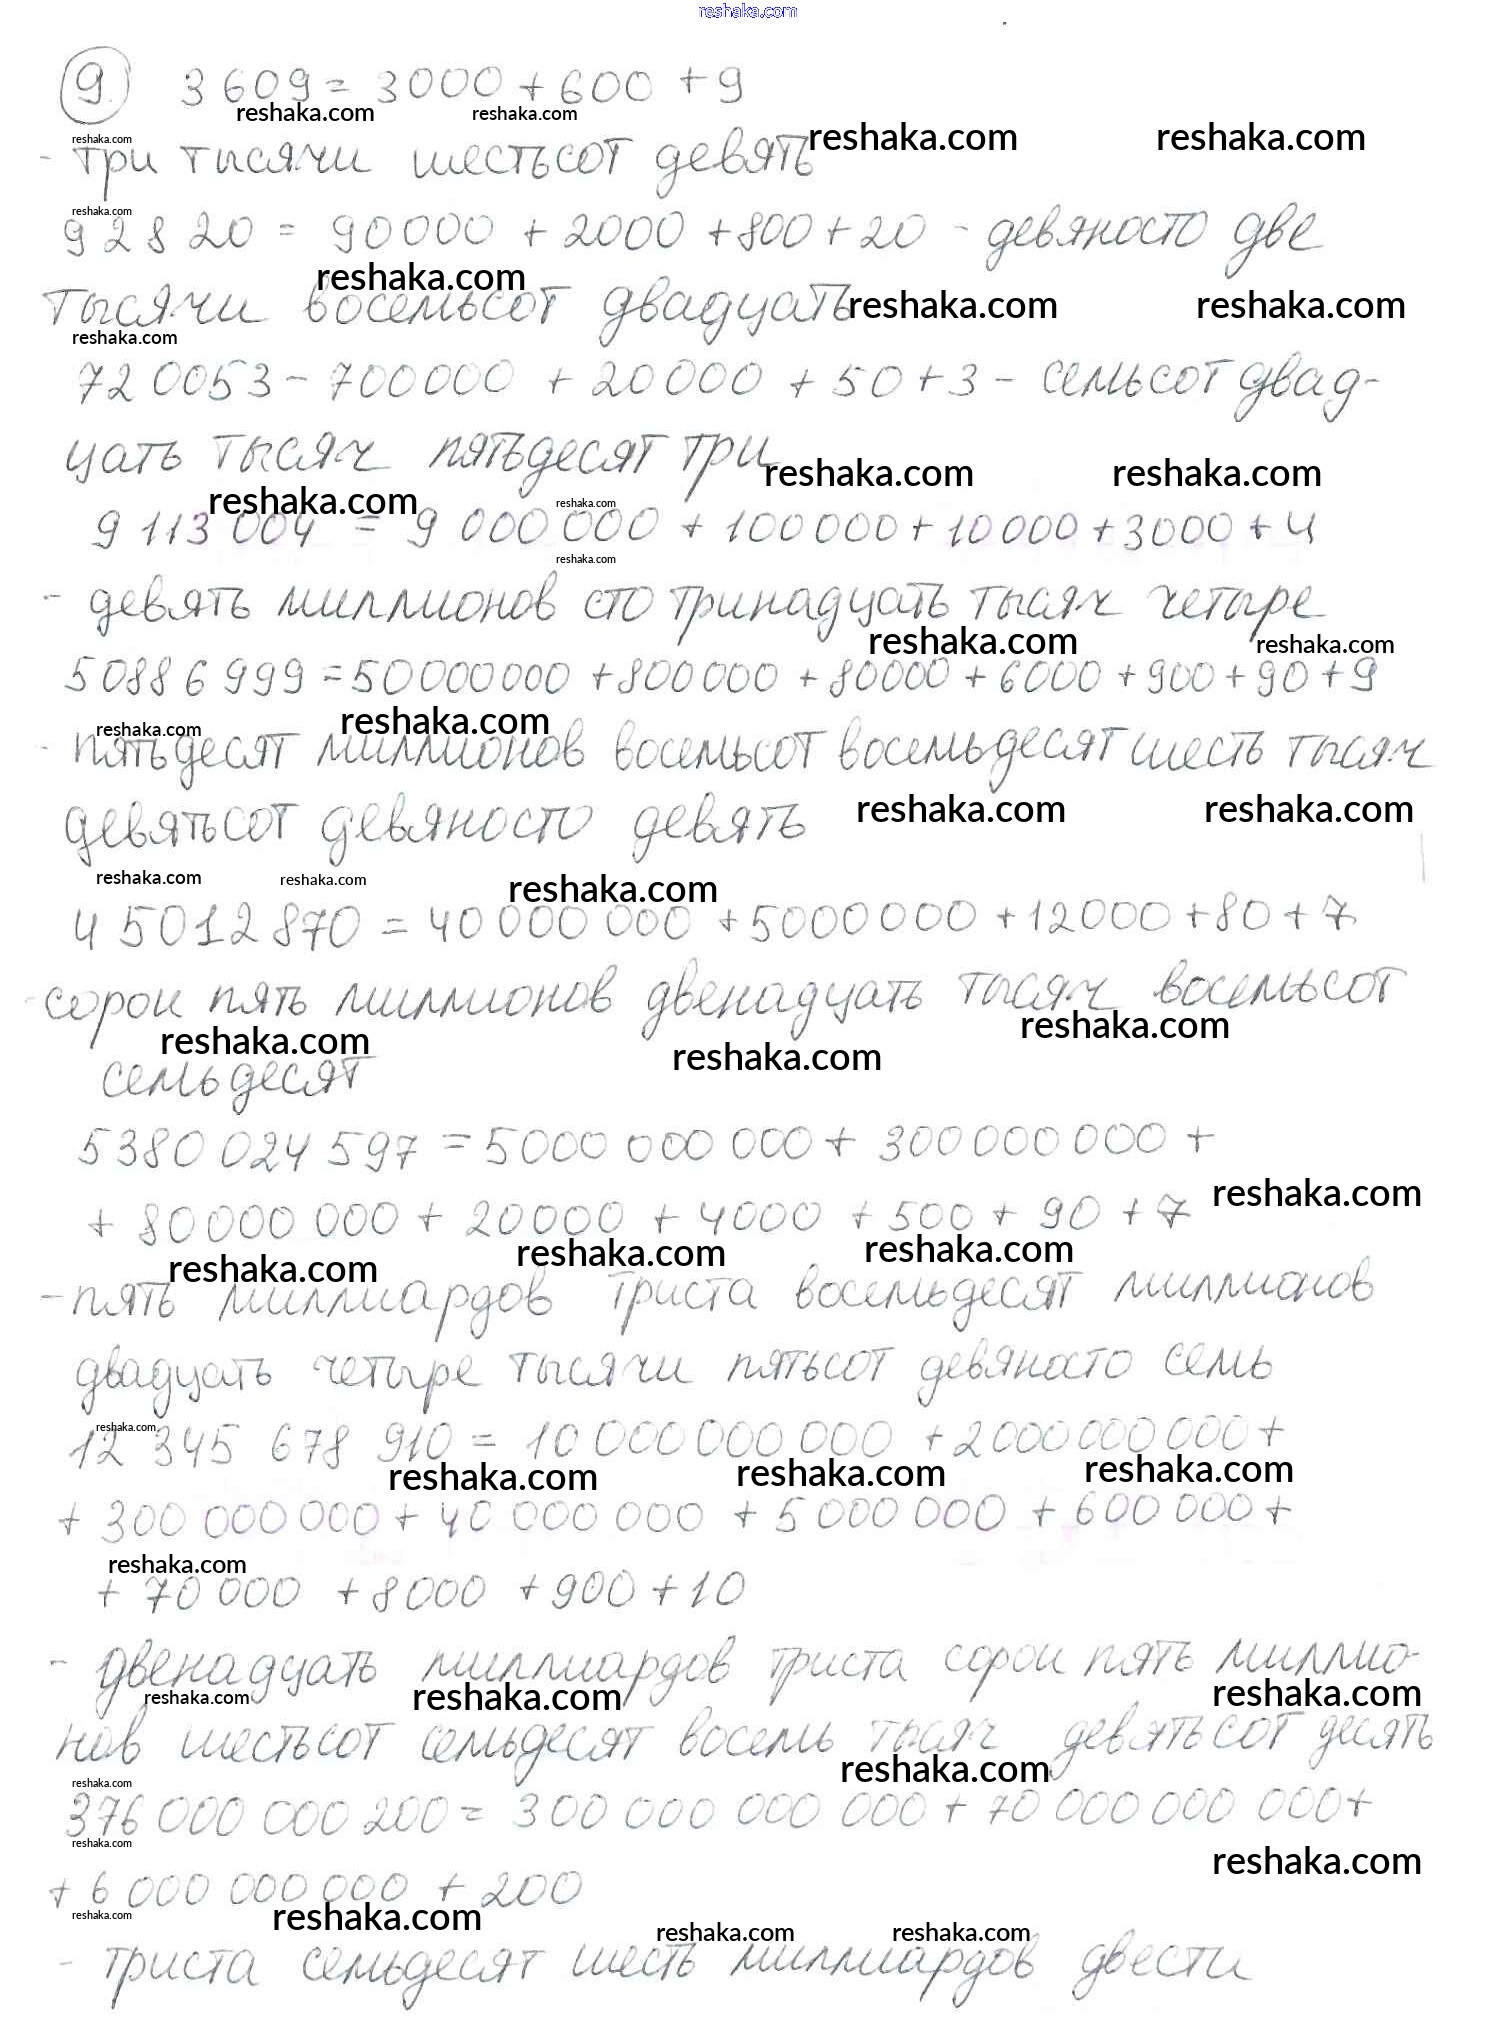 reshaka.com
9 3609 = 3000 + 600 + 9
reshaka.com reshaka.com
reshaka.com reshaka.com reshaka.com
- три тысячи шестьсот девять
reshaka.com
92820 = 90000 + 2000 + 800 + 20 - девяносто две
reshaka.com
тысячи восемьсот двадцать reshaka.com reshaka.com
reshaka.com
720053 - 700000 + 20000 + 50 + 3 - семьсот двад-
цать тысяч пятьдесят три
reshaka.com reshaka.com
reshaka.com reshaka.com
9 113 004 = 9 000 000 + 100000 + 10000 + 3000 + 4
reshaka.com
- девять миллионов сто тринадцать тысяч четыре
reshaka.com reshaka.com
50886999 = 50000000 + 800000 + 80000 + 6000 + 900 + 90 + 9
reshaka.com reshaka.com
- пятьдесят миллионов восемьсот восемьдесят шесть тысяч
девятьсот девяносто девять reshaka.com reshaka.com
reshaka.com reshaka.com reshaka.com
45012870 = 40 000 000 + 5000000 + 12000 + 80 + 7
- сорок пять миллионов двенадцать тысяч восемьсот
reshaka.com reshaka.com reshaka.com
семьдесят
5380 024 597 = 5000 000 000 + 300 000 000 +
+ 80 000 000 + 20000 + 4000 + 500 + 90 + 7 reshaka.com
reshaka.com reshaka.com reshaka.com
- пять миллиардов триста восемьдесят миллионов
двадцать четыре тысячи пятьсот девяносто семь
reshaka.com
12 345 678 910 = 10 000 000 000 + 2000 000 000 +
reshaka.com reshaka.com reshaka.com
+ 300 000 000 + 40 000 000 + 5 000 000 + 600 000 +
reshaka.com
+ 70 000 + 8000 + 900 + 10
- двенадцать миллиардов триста сорок пять миллио-
reshaka.com reshaka.com reshaka.com
нов шестьсот семьдесят восемь тысяч девятьсот десять
reshaka.com reshaka.com
376 000 000 200 = 300 000 000 000 + 70 000 000 000 +
reshaka.com reshaka.com
+ 6 000 000 000 + 200
reshaka.com reshaka.com reshaka.com reshaka.com
- триста семьдесят шесть миллиардов двести